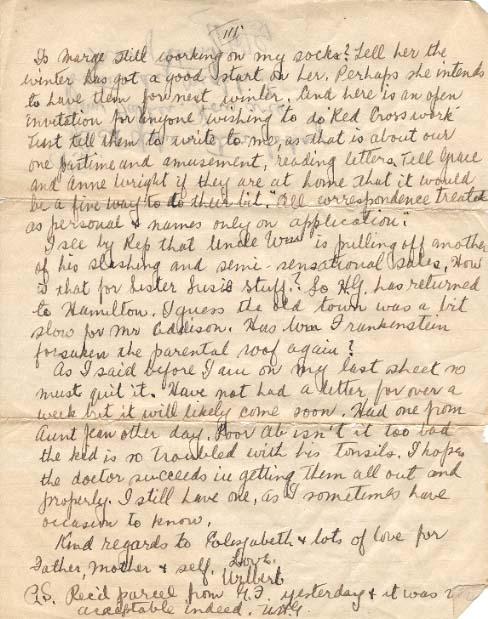 III
Is Marge still working on my socks? Tell her the
winter has got a good start on her. Perhaps she intends
to have them for next winter. And here is an open
invitation for anyone wishing to do Red Cross work
Just tell them to write to me, as that is about our
one pastime and amusement, reading letters. Tell Grace
and Anne Wright if they are at home that it would
be a fine way to do their bit. "All correspondence treated
as personal & names only on application."
I see by Rep that Uncle is pulling off another
of his slashing and semi-sensational sales. How
is that for Sister Susie stuff? So H.G. has returned
to Hamilton. I guess the old town was a bit
slow for Mr Addison. Has Wm Frankenstein
forsaken the parental roof again?
As I said before I am on my last sheet so
must quit it. Have not had a letter for over a
week but it will likely come soon. Had one from
Aunt Jean other day. Poor Ab isn't it too bad
the kid is so troubled with his tonsils. I hope
the doctor succeeds in getting them all out and
properly. I still have one, as I sometimes have
occasion to know.
Kind regards to & lots of love for
Father, Mother & self. Love.
Wilbert
P.S. Rec'd parcel from yesterday & it was
acceptable indeed.